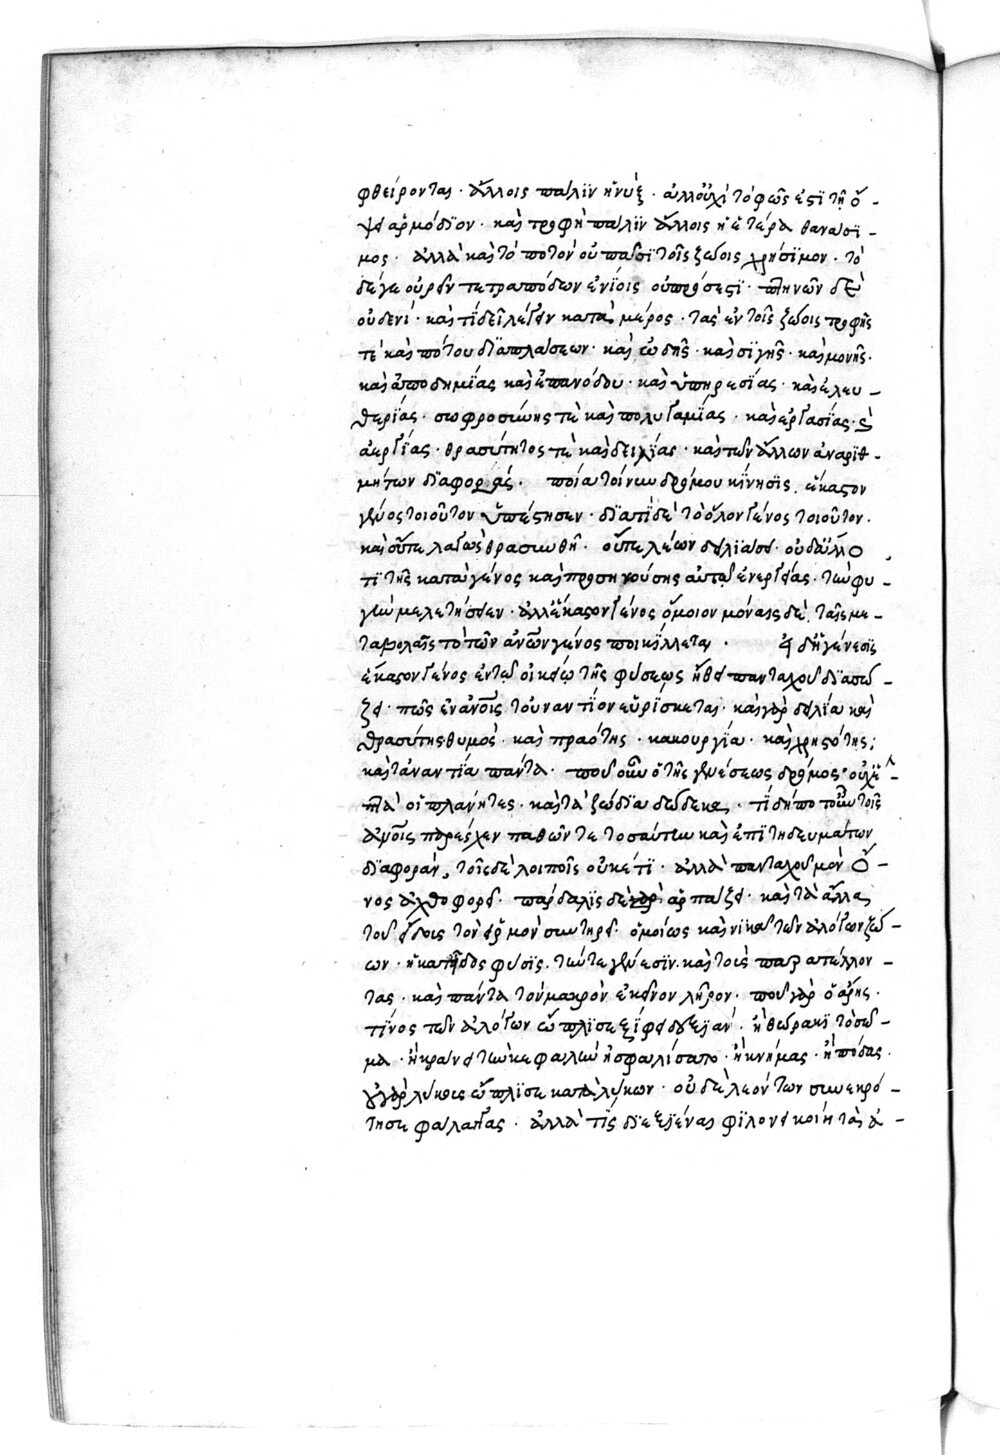 φθείρονται · ἄλλοις πάλιν ἡ νὺξ · ἀλλ' οὐχὶ τὸ φῶς ἐστὶ τῇ ὄ-
ψει ἁρμόδιον · καὶ τροφὴ πάλιν ἄλλοις ἡ ἑτέρα θανάσι-
μος · ἀλλὰ καὶ τὸ ποτὸν οὐ πᾶσι τοῖς ζώοις χρήσιμον · τὸ
δέ γε οὐρεῖν τετραπόδων ἐνίοις οὐ πρόσεστι · πτηνῶν δὲ
οὐδενί · καὶ τί δεῖ λέγειν κατὰ μέρος · τὰς ἐν τοῖς ζώοις τροφῆς
τὲ καὶ πότου διαπλάσεων · καὶ ὠδῆς · καὶ σιγῆς · καὶ μονῆς ·
καὶ ἀποδημίας καὶ ἐπανόδου · καὶ ὑπηρεσίας · καὶ ἐλευ-
θερίας · σωφροσύνης τὲ καὶ πολυγαμίας · καὶ ἐργασίας · καὶ
ἀεργίας · θρασύτητος τὲ καὶ δειλίας · καὶ τῶν ἄλλων ἀναριθ-
μήτων διαφοράς · ποία τοίνυν δρόμου κίνησις ἕκαστον
γένος τοιοῦτον ὑπέστησεν · διατί δὲ τὸ ὅλον γένος τοιοῦτον ·
καὶ οὔτε λαγωὸς θρασυνθῇ · οὔτε λέων δειλιάσει · οὐδ' ἄλλο
τι τῆς κατὰ γένος καὶ προσηκούσης αὐτῷ ἐνεργείας · τὴν φυ-
γὴν μελετήσειεν · ἀλλ' ἕκαστον γένος ὅμοιον μόναις δὲ ταῖς με-
ταβολαῖς τὸ τῶν ἀνων γένος ποικίλλεται · εἰ δὴ γένεσις
ἕκαστον γένος ἐν τῷ οἰκείῳ τῆς φύσεως ἤθει πανταχοῦ διασώ-
ζει · πῶς ἐν ἀνοις τοὐναντίον εὑρίσκεται · καὶ γὰρ δειλία καὶ
θρασύτης · θυμὸς · καὶ πραότης · κακουργία · καὶ χρηστότης ·
καὶ τἀναντία πάντα · ποῦ οὖν ὁ τῆς γενέσεως δρόμος · οὐχ ἑ-
πτὰ οἱ πλάνητες · καὶ τὰ ζώδια δώδεκα · τί δήποτ' οὖν τοῖς
ἀνοις παρέσχεν παθῶν τε τοσαύτην καὶ ἐπιτηδευμάτων
διαφοράν, τοῖς δὲ λοιποῖς οὐκέτι · ἀλλὰ πανταχοῦ μὲν ὄ-
νος ἀχθοφορεῖ · πάρδαλις δὲ ἁρπάζει · καὶ τὰ ἄλλα
τοῦ εἴδους τὸν εἱρμὸν συντηρεῖ · ὁμοίως καὶ νικᾷ τῶν ἀλόγων ζώ-
ων · ἡ κατ' εἶδος φύσις · τήν τε γένεσιν · καὶ τοὺς παραπέλλον-
τας · καὶ πάντα τὸν μακρὸν ἐκεῖνον λῆρον · ποῦ γὰρ ὁ ἄρης ·
τίνος τῶν ἀλόγων ὥπλισε ξίφει δεξιάν · ἢ θώρακι τὸ σῶ-
μα · ἢ κράνει τὴν κεφαλὴν ἠσφαλίσατο · ἢ κνήμας · ἢ πόδας ·
οὐ γὰρ λύκοις ὥπλισε κατὰ λύκων · οὐδὲ λεόντων συνεκρό-
τησε φάλαγγας · ἀλλὰ τίς διεξιέναι φιλονεικοίη τὰ ἀ-